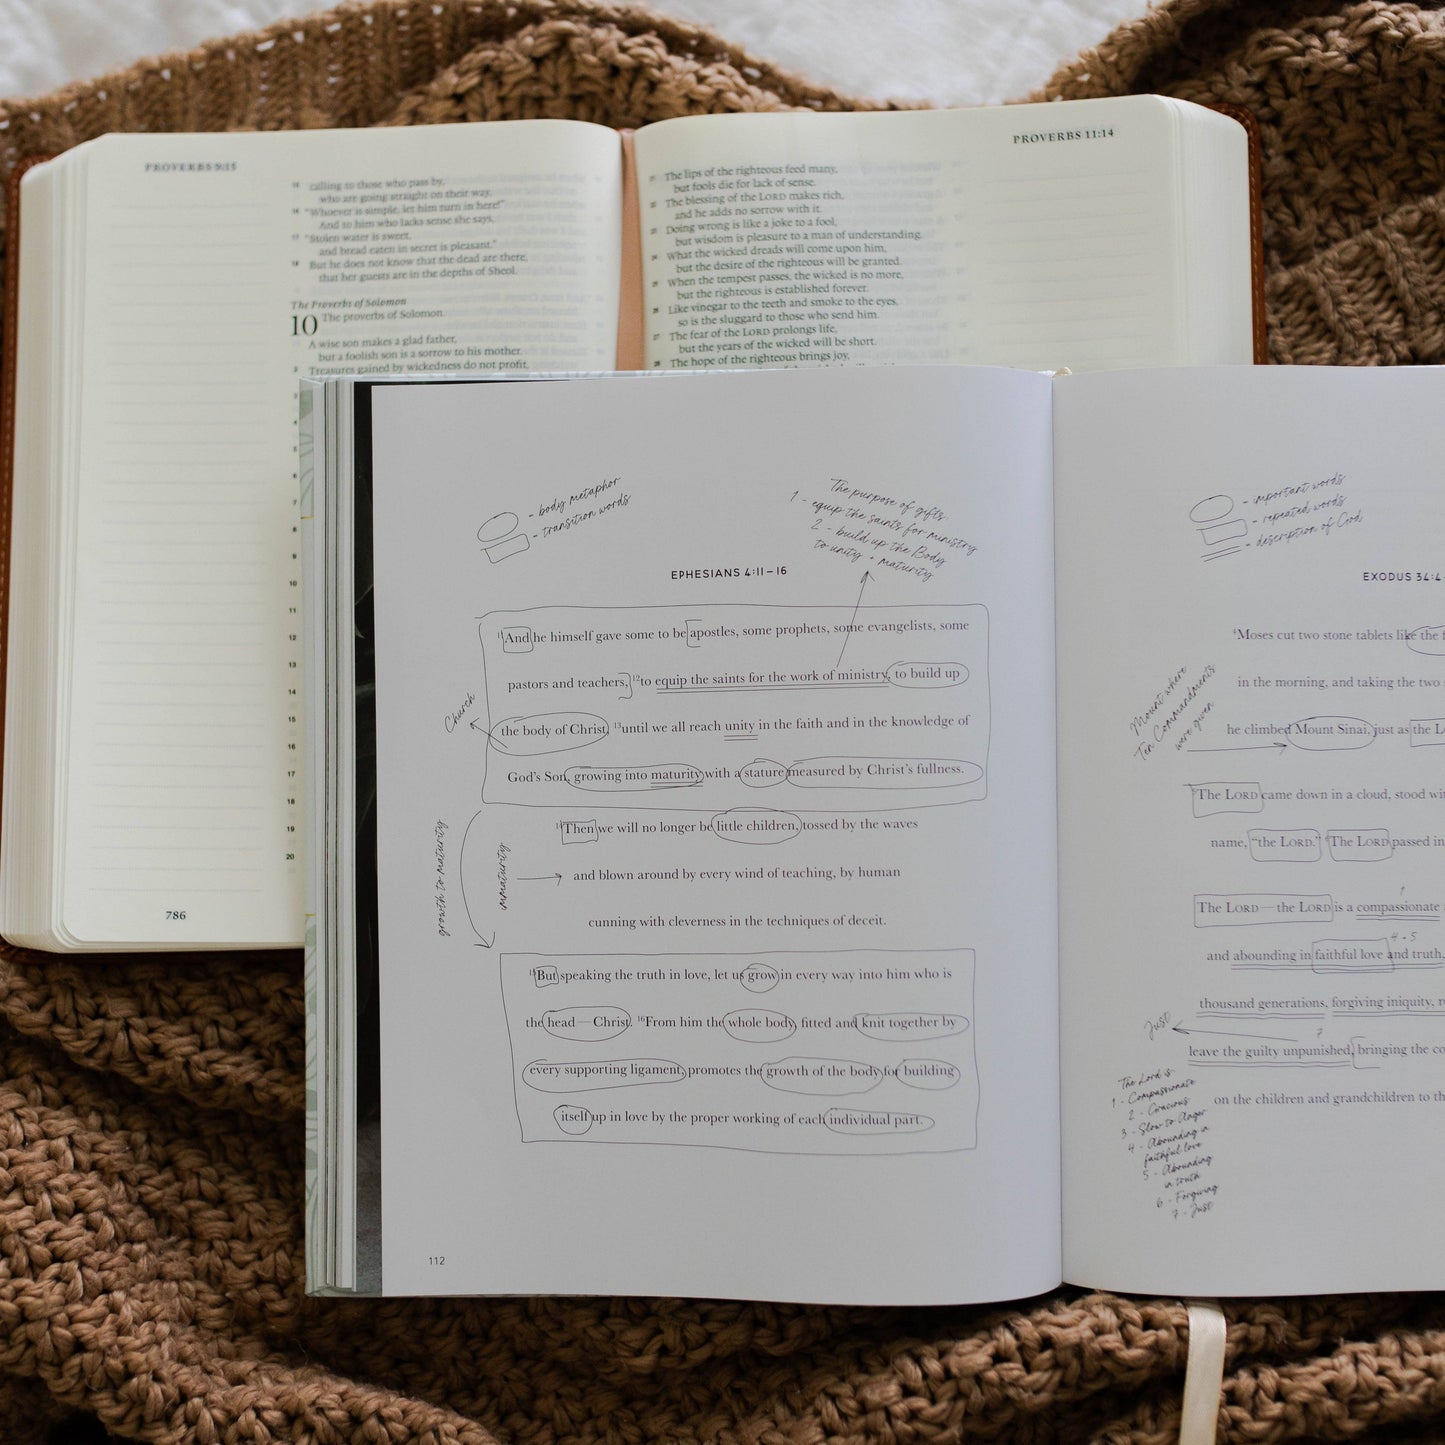 PROVERBS 9:15
15 calling to those who pass by,
who are going straight on their way,
16 "Whoever is simple, let him turn in here!"
And to him who lacks sense she says,
17 "Stolen water is sweet,
and bread eaten in secret is pleasant."
18 But he does not know that the dead are there,
that her guests are in the depths of Sheol.
The Proverbs of Solomon
10 The proverbs of Solomon.
A wise son makes a glad father,
but a foolish son is a sorrow to his mother.
2 Treasures gained by wickedness do not profit,
3
4
5
6
7
8
9
10
11
12
13
14
15
16
17
18
19
20
786
PROVERBS 11:14
21 The lips of the righteous feed many,
but fools die for lack of sense.
22 The blessing of the LORD makes rich,
and he adds no sorrow with it.
23 Doing wrong is like a joke to a fool,
but wisdom is pleasure to a man of understanding.
24 What the wicked dreads will come upon him,
but the desire of the righteous will be granted.
25 When the tempest passes, the wicked is no more,
but the righteous is established forever.
26 Like vinegar to the teeth and smoke to the eyes,
so is the sluggard to those who send him.
27 The fear of the LORD prolongs life,
but the years of the wicked will be short.
28 The hope of the righteous brings joy,
- body metaphor
- transition words
The purpose of gifts:
1 - equip the saints for ministry
2 - build up the Body
to unity + maturity
EPHESIANS 4:11–16
11 And he himself gave some to be apostles, some prophets, some evangelists, some
pastors and teachers, 12 to equip the saints for the work of ministry, to build up
Church
the body of Christ, 13 until we all reach unity in the faith and in the knowledge of
God's Son, growing into maturity with a stature measured by Christ's fullness.
14 Then we will no longer be little children, tossed by the waves
growth to maturity
immaturity
and blown around by every wind of teaching, by human
cunning with cleverness in the techniques of deceit.
15 But speaking the truth in love, let us grow in every way into him who is
the head — Christ. 16 From him the whole body, fitted and knit together by
every supporting ligament, promotes the growth of the body for building
itself up in love by the proper working of each individual part.
112
- important words
- repeated words
- description of God
EXODUS 34:4
4 Moses cut two stone tablets like the
in the morning, and taking the two
Mount where
Ten Commandments
were given
he climbed Mount Sinai, just as the
5 The LORD came down in a cloud, stood
name, "the LORD." 6 The LORD passed in
1
The LORD — the LORD is a compassionate
4 + 5
and abounding in faithful love and truth,
thousand generations, forgiving iniquity,
Just
7
leave the guilty unpunished, bringing the
on the children and grandchildren to
The Lord is:
1 - Compassionate
2 - Gracious
3 - Slow to Anger
4 - Abounding in
faithful love
5 - Abounding
in truth
6 - Forgiving
7 - Just